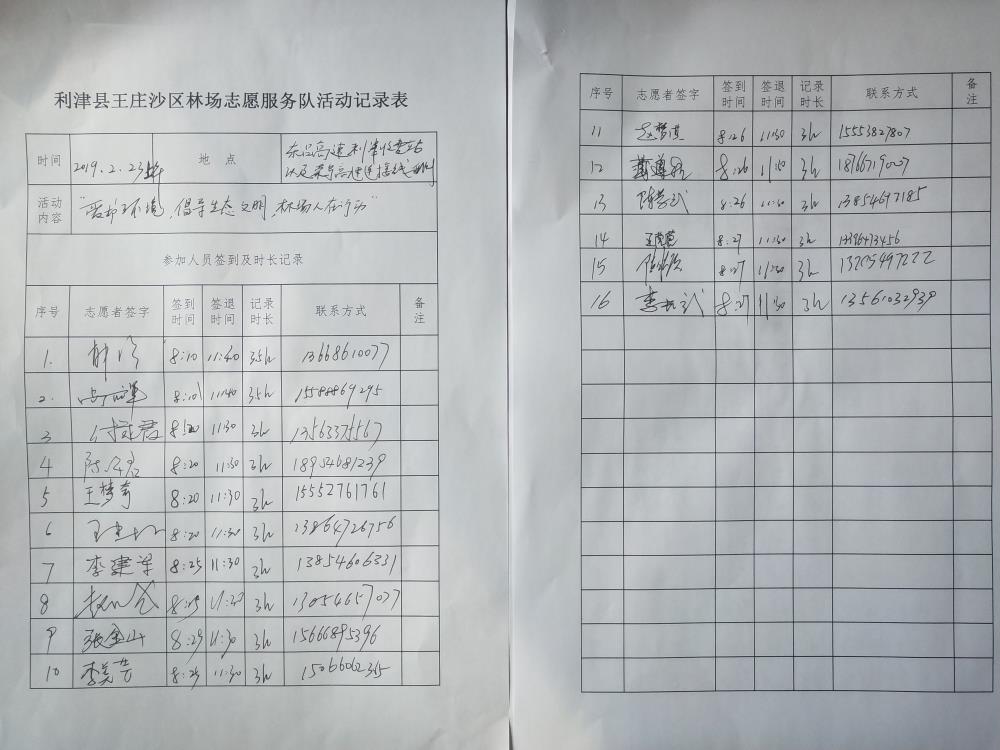 利津县王庄沙区林场志愿服务队活动记录表
时间 2019.2.23 地点 东吕高速利津收费站
以及荣乌高速连接线
活动内容 "爱护环境,倡导生态文明,林场人在行动"
参加人员签到及时长记录
序号 志愿者签字 签到时间 签退时间 记录时长 联系方式 备注
1. 8:10 11:40 3.5h 13668610077
2. 8:10 11:40 3.5h 15588869295
3 8:20 11:30 3h 13563375567
4 8:20 11:30 3h 18954681239
5 王梦奇 8:20 11:30 3h 15552761761
6 8:20 11:30 3h 13864726756
7 李建军 8:25 11:30 3h 13854606331
8 8:25 3h 13054657077
9 张金山 8:25 11:30 3h 15666895396
10 李美芳 8:25 11:30 3h 15066062315
序号 志愿者签字 签到时间 签退时间 记录时长 联系方式 备注
11 8:26 11:30 3h 15553827807
12 8:26 11:30 3h
13 8:26 11:30 3h 13854697185
14 8:27 11:30 3h 13396473456
15 8:27 11:30 3h 13205497222
16 8:27 11:30 3h 13561032939